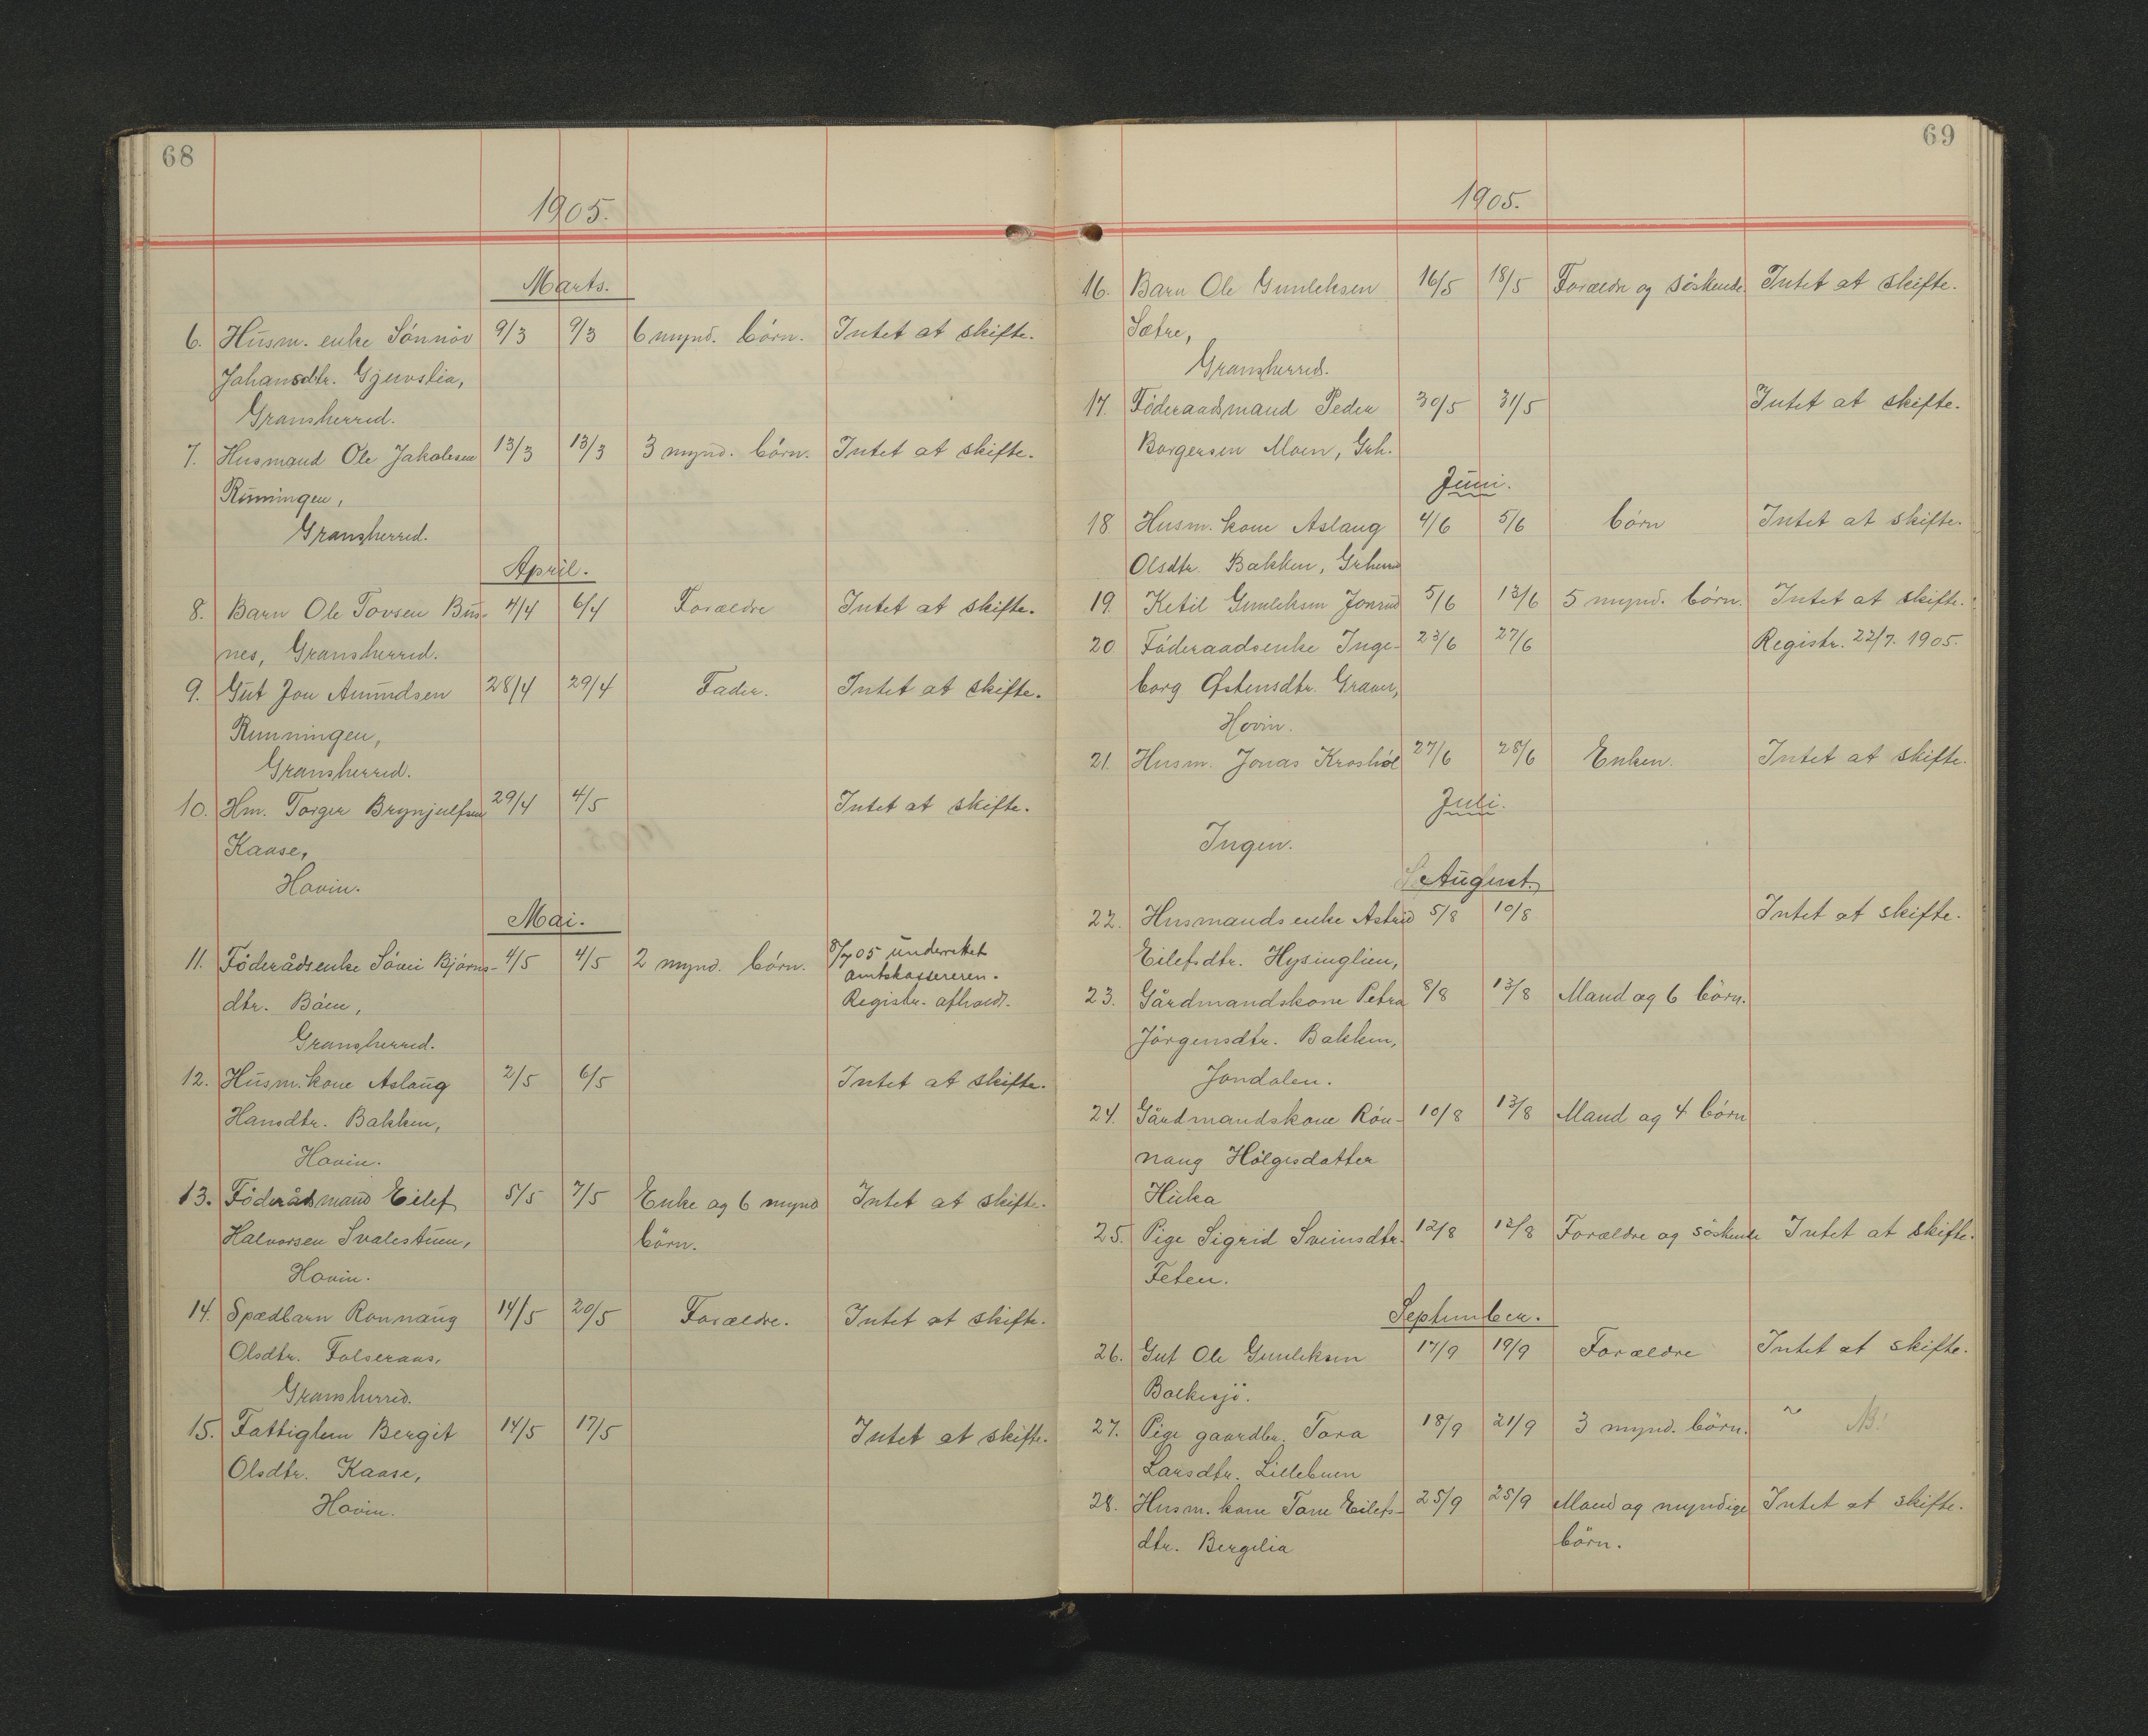 68
1905.
Marts.
6. Husm. enke Sönnöv 9/3 9/3 6 mynd. börn. Intet at skifte.
Johansdtr. Gjuvslia,
Gransherred.
7. Husmand Ole Jakobsen 13/3 13/3 3 mynd. börn. Intet at skifte.
Rünningen,
Gransherred.
April.
8. Barn Ole Tovsen Bus- 4/4 6/4 Forældre Intet at skifte.
nes, Gransherred.
9. Gut Jon Amundsen 28/4 29/4 Fader. Intet at skifte.
Runningen,
Gransherred.
10. Hm. Torger Brynjulfsen 29/4 4/5 Intet at skifte.
Kaase,
Hovin.
Mai.
11. Föderådsenke Sönni Björns- 4/5 4/5 2 mynd. börn. 8/7 05 underrettet
amtskassereren.
dtr. Böen, Registr. afholdt.
Gransherred.
12. Husm. kone Aslaug 2/5 6/5 Intet at skifte.
Hansdtr. Bakken,
Hovin.
13. Föderådsmand Eilef 5/5 7/5 Enke og 6 mynd Intet at skifte.
Halvorsen Svalestuen, börn.
Hovin.
14. Spædbarn Ronnaug 14/5 20/5 Forældre. Intet at skifte.
Olsdtr. Folseraas,
Gransherred.
15. Fattiglem Bergit 14/5 17/5 Intet at skifte.
Olsdtr. Kaase,
Hovin.
69
1905.
16. Barn Ole Gunleksen 16/5 18/5 Forældre og söskende. Intet at skifte.
Sætre,
Gransherred.
17. Föderaadsmand Peder 30/5 31/5 Intet at skifte.
Borgersen Moen, Grh.
Juni.
18 Husm. kone Aslaug 4/6 5/6 börn Intet at skifte.
Olsdtr. Bakken, Grherred
19. Ketil Gunleksen Jonrud 5/6 13/6 5 mynd. börn. Intet at skifte.
20 Föderaadsenke Inge- 23/6 27/6 Registr. 22/7. 1905.
borg Østensdtr. Graver,
Hovin.
21. Husm. Jonas Kroshöl 27/6 28/6 Enken. Intet at skifte.
Juli.
Ingen.
August.
22. Husmandsenke Astrid 5/8 10/8 Intet at skifte.
Eilefsdtr. Hysinglien,
23. Gårdmandskone Petra 8/8 13/8 Mand og 6 börn.
Jörgensdtr. Bakken,
Jondalen.
24. Gårdmandskone Rön- 10/8 13/8 Mand og 4 börn
naug Hölgesdatter
Huka
25. Pige Sigrid Sveinsdtr. 12/8 12/8 Forældre og söskende Intet at skifte.
Feten.
September.
26. Gut Ole Gunleksen 17/9 19/9 Forældre Intet at skifte.
Bolkesjö.
27. Pige gaardbr. Tora 18/9 21/9 3 mynd. börn. ~ NB!
Larsdtr. Lillebuen
28. Husm. kone Tone Eilefs- 25/9 25/9 Mand og myndige Intet at skifte.
dtr. Bergilia börn.